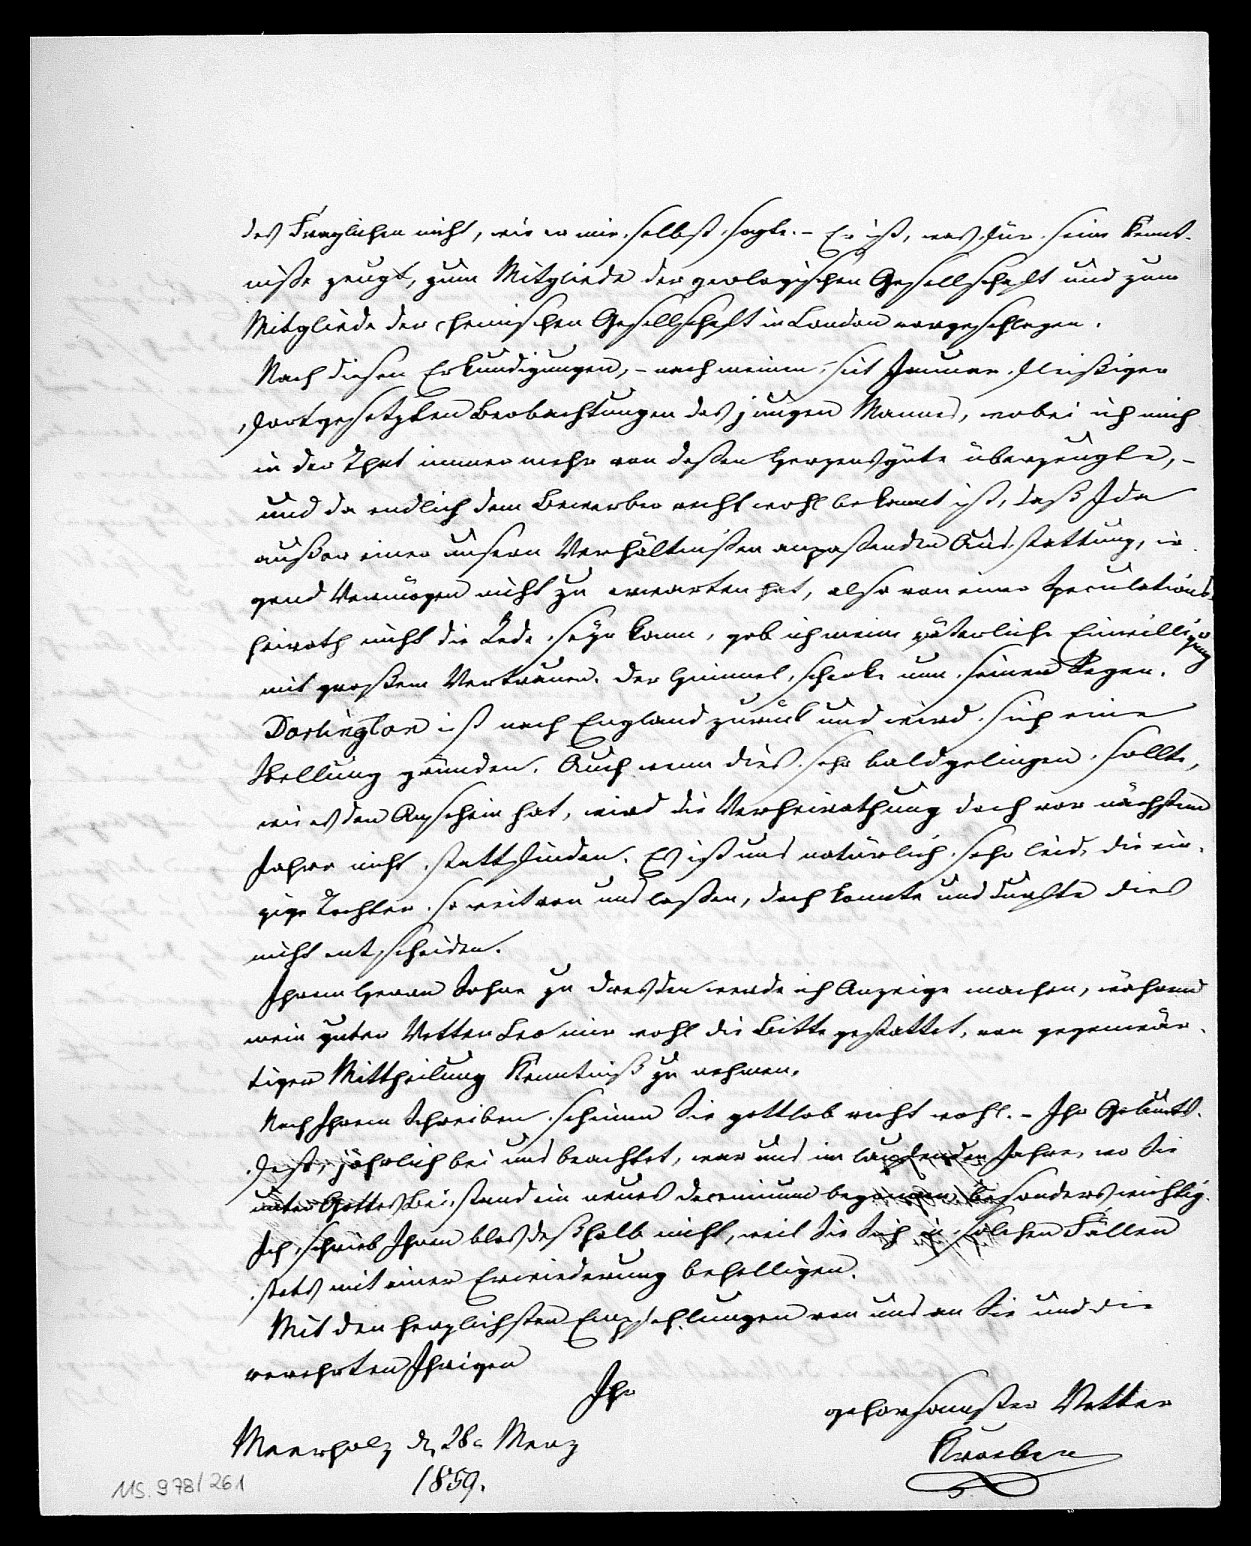 des Fraglichen nicht, wie er mir selbst sagte. – Er ist, was für seine Kennt-
niße zeugt, zum Mitgliede der geologischen Gesellschaft und zum
Mitgliede der chemischen Gesellschaft in London vorgeschlagen.
Nach diesen Erkundigungen, – nach meinen seit Januar fleißigen
fortgesetzten Beobachtungen des jungen Mannes, wobei ich mich
in der That immer mehr von deßen Herzensgüte überzeugte, –
und da endlich dem Bewerber recht wohl bekannt ist, daß Ida
außer einer unsern Verhältnißen anpaßenden Ausstattung, ir-
gend Vermögen nicht zu erwarten hat, also von einer Speculations-
heirath nicht die Rede seyn kann, gab ich meine väterliche Einwilligung
mit großem Vertrauen. Der Himmel schenke nun seinen Segen.
Darlington ist nach England zurück und wird sich eine
Stellung gründen. Auch wenn dies sehr bald gelingen sollte,
wie es den Anschein hat, wird die Verheirathung doch vor nächstem
Jahre nicht stattfinden. Es ist uns natürlich sehr leid, die ein-
zige Tochter so weit von uns laßen, doch konnte und durfte dies
nicht entscheiden.
Ihrem Herrn Sohne zu Dresden werde ich Anzeige machen, während
mein guter Vetter Leo mir wohl die Bitte gestattet, von gegenwär-
tiger Mittheilung Kenntniß zu nehmen.
Nach Ihrem Schreiben scheinen Sie gottlob recht wohl. – Ihr Geburts-
fest, jährlich bei uns beachtet, war uns im laufenden Jahre, wo Sie
unter Gottes Beistand ein neues Decennium begonnen, besonders wichtig.
Ich schrieb Ihnen blos deßhalb nicht, weil Sie Sich in solchen Fällen
stets mit einer Erwiederung behelligen.
Mit den herzlichsten Empfehlungen von uns an Sie und die
verehrten Ihrigen
Ihr
gehorsamster Vetter
Meerholz d. 28. Merz
1859.
MS. 978/261